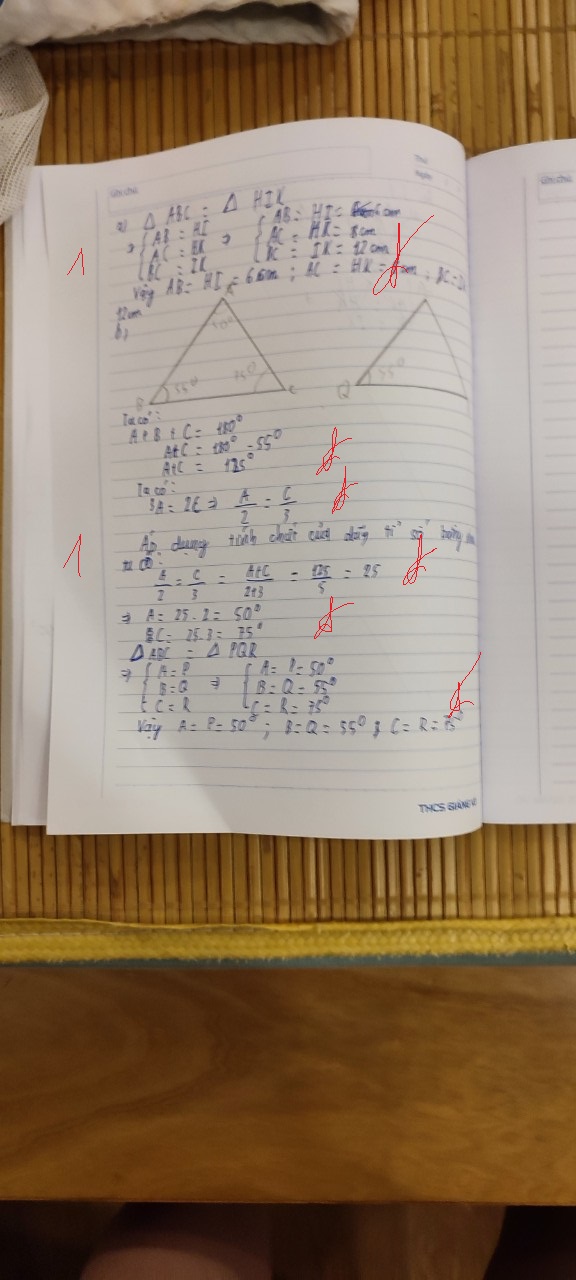 Ghi chú
Thứ
Ngày
Ghi chú
a) Δ ABC = Δ HIK
⇒ { AB = HI ⇒ { AB = HI = 6cm
AC = HK AC = HK = 8cm
BC = IK BC = IK = 12cm
1
Vậy AB = HI = 6cm ; AC = HK = cm ; BC =
12cm
b)
A
50°
B 55° 75° C
Q 55°
Ta có:
A + B + C = 180°
A+C = 180° - 55°
A+C = 125°
Ta có:
3A = 2C ⇒ A/2 = C/3
1
Áp dụng tính chất của dãy tỉ số bằng
ta có:
A/2 = C/3 = A+C/2+3 = 125/5 = 25
⇒ A = 25 . 2 = 50°
C = 25.3 = 75°
Δ ABC = Δ PQR
⇒ { A = P ⇒ { A = P = 50°
B = Q B = Q = 55°
C = R C = R = 75°
Vậy A = P = 50° ; B = Q = 55° ; C = R = 75°
THCS GIẢNG VÕ